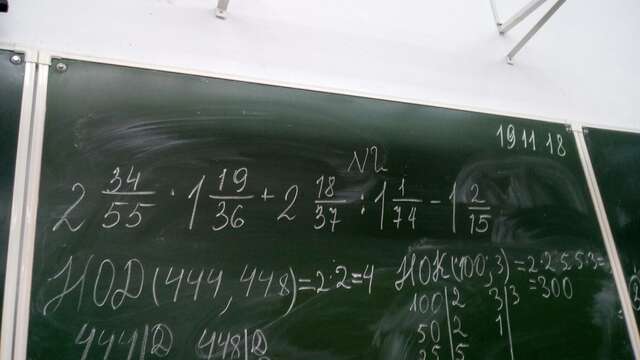 19 11 18
N2
2 34/55 · 1 19/36 + 2 18/37 : 1 1/74 - 1 2/15
НОД (444, 448) = 2·2=4
НОК (100; 3) = 2·2·5·5·3=
=300
444|2 448|2
100|2 3|3
50|2 1
25|5